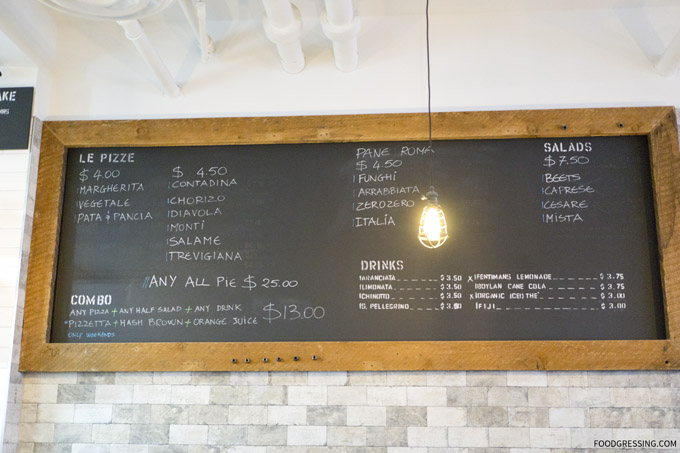 AKE
LE PIZZE
$4.00
MARGHERITA
VEGETALE
PATA & PANCIA
$4.50
CONTADINA
CHORIZO
DIAVOLA
MONTI
SALAME
TREVIGIANA
ANY ALL PIE $25.00
COMBO
ANY PIZZA + ANY HALF SALAD + ANY DRINK
*PIZZETTA + HASH BROWN + ORANGE JUICE $13.00
ONLY WEEKENDS
PANE ROMA
$4.50
FUNGHI
ARRABBIATA
ZEROZERO
ITALIA
SALADS
$7.50
BEETS
CAPRESE
CESARE
MISTA
DRINKS
ARANCIATA $3.50
LIMONATA $3.50
CHINOTTO $3.50
S. PELLEGRINO $3.50
X FENTIMANS LEMONADE $3.75
BOYLAN CANE COLA $3.75
X ORGANIC ICED TEA $3.00
FIJI $3.00
FOODGRESSING.COM